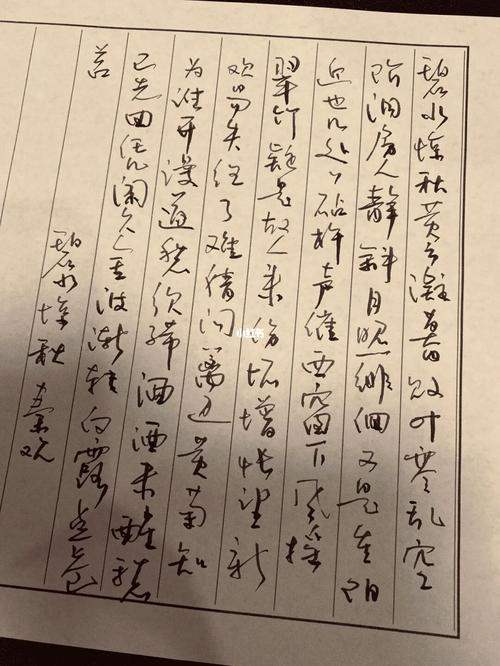 碧水惊秋黄云凝暮败叶零乱空
阶洞房人静斜月照徘徊又是重阳
近也几处处砧杵声催西窗下风摇
翠竹疑是故人来伤怀增怅望新
欢易失往事难猜问篱边黄菊知
为谁开漫道愁须殢酒酒未醒愁
已先回凭阑久金波渐转白露点苍
苔
碧水惊秋 秦观
小红书